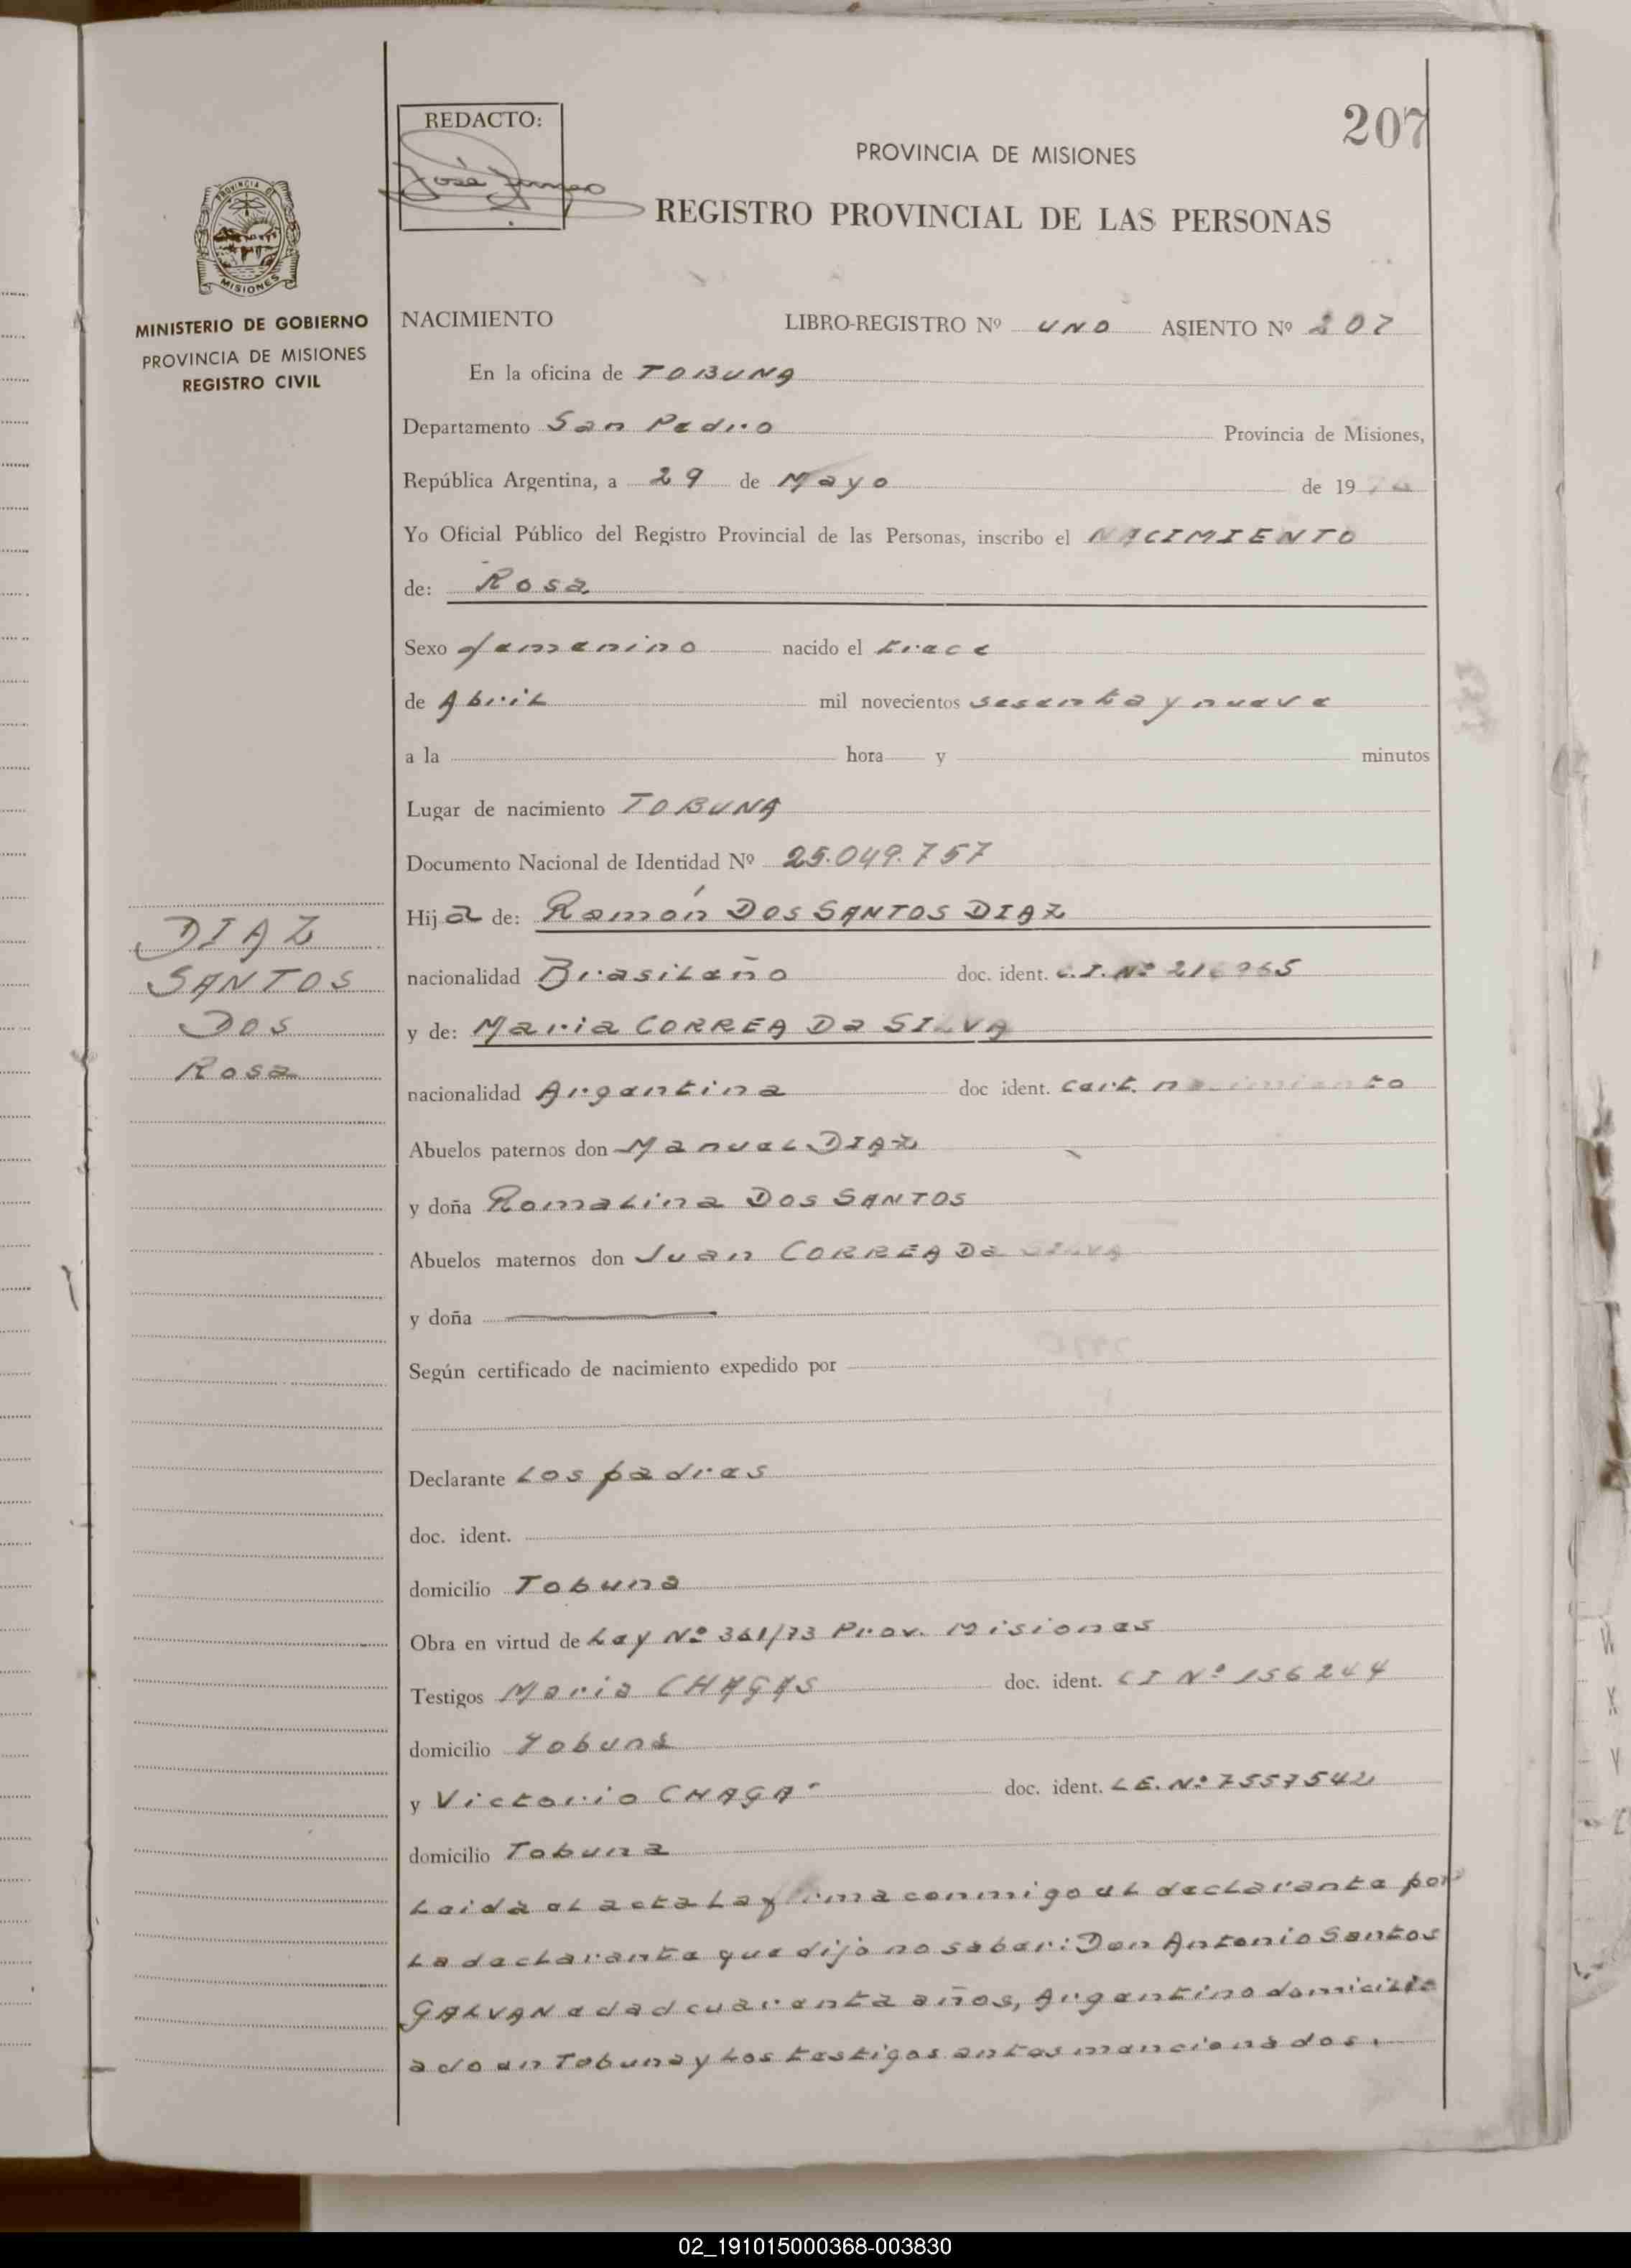 207
REDACTO:
PROVINCIA DE MISIONES
REGISTRO PROVINCIAL DE LAS PERSONAS
PROVINCIA DE
MISIONES
MINISTERIO DE GOBIERNO
PROVINCIA DE MISIONES
REGISTRO CIVIL
NACIMIENTO LIBRO-REGISTRO Nº UNO ASIENTO Nº 207
En la oficina de TOBUNA
Departamento San Pedro Provincia de Misiones,
República Argentina, a 29 de Mayo de 19
Yo Oficial Público del Registro Provincial de las Personas, inscribo el NACIMIENTO
de: Rosa
Sexo femenino nacido el trece
de Abril mil novecientos sesenta y nueve
a la hora y minutos
Lugar de nacimiento TOBUNA
Documento Nacional de Identidad Nº 25.049.757
Hija de: Ramón DOS SANTOS DIAZ
nacionalidad Brasileño doc. ident. C.I. Nº
y de: Maria CORREA Da SILVA
nacionalidad Argentina doc ident. Cert. nacimiento
Abuelos paternos don Manuel DIAZ
y doña Romelina DOS SANTOS
Abuelos maternos don Juan CORREA Da SILVA
y doña
Según certificado de nacimiento expedido por
Declarante Los padres
doc. ident.
domicilio Tobuna
Obra en virtud de Ley Nº 361/73 Prov. Misiones
Testigos Maria CHAGAS doc. ident. CI Nº 156244
domicilio Tobuna
y Victorio CHAGA doc. ident. LE. Nº 7557542
domicilio Tobuna
Leida el acta La firma conmigo el declarante por
La declarante que dijo no saber: Don Antonio Santos
GALVAN edad cuarenta años, Argentino domicilia
ado en Tobuna y Los testigos antes mencionados.
DIAZ
SANTOS
DOS
Rosa
02_191015000368-003830